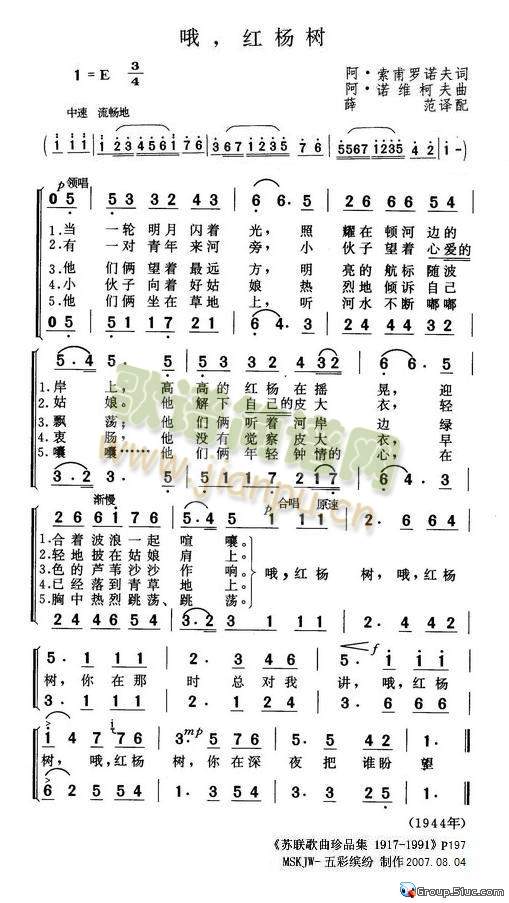 哦，红杨树
1=E 3/4
阿·索甫罗诺夫词
阿·诺维柯夫曲
薛 范译配
中速 流畅地
p 领唱
0 5 5 3 3 2 4 3 6 6 . 5 6 6 2 2 5 4
1.当一轮明月闪着光，照耀在顿河边的
2.有一对青年来河旁，小伙子望着心爱的
3.他们俩望着最远方，明亮的航标随波
4.小伙子向着好姑娘热烈地倾诉自己
5.他们俩坐在草地上，听河水不断嘟嘟
0 5 5 1 1 7 2 1 6 4 . 3 4 4 6 6 3 2
1.岸上，高高的红杨在摇晃，迎
2.姑娘。他解下自己的皮大衣，轻
3.飘荡；他们俩听着河岸边绿
4.衷肠，他没有觉察皮大衣，早
5.嚷嚷……他们俩年轻钟情的心，在
渐慢
p 合唱 原速
2 6 6 1 7 6 5 . 4 5 1 1 1 2 . 6 4 4
1.合着波浪一起喧嚷。
2.轻地披在姑娘肩上。
3.色的芦苇沙沙作响。
4.已经落到青草地上。
5.胸中热烈跳荡、跳荡。
哦，红杨树，哦，红杨
2 4 4 6 5 4 3 . 2 3 1 1 1 2 . 6 4 4
f
5 . 1 1 1 2 . 3 4 6 5 . 1 1 1
树，你在那时总对我讲，哦，红杨
3 . 1 1 1 2 . 1 2 4 3 . 1 1 1
mp
1 4 7 7 6 3 . 5 7 6 5 6 4 2 1 .
树，哦，红杨树，你在深夜把谁盼望
(1944年)
《苏联歌曲珍品集 1917-1991》P197
MSKJW-五彩缤纷 制作2007.08.04
歌谱简谱网
www.jianpu.cn
Group.51uc.com